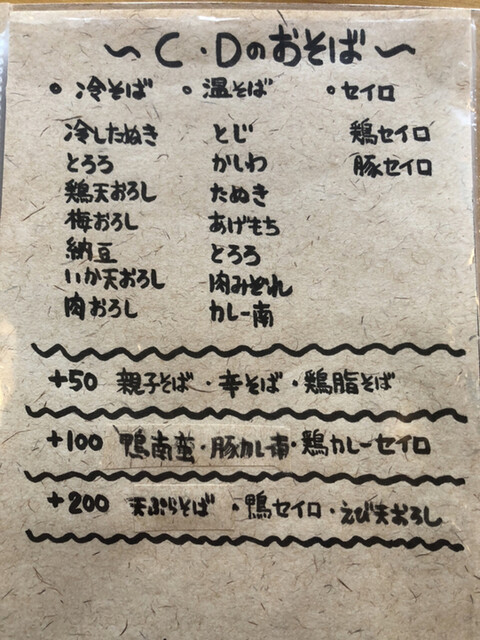 ～C・Dのおそば～
○ 冷そば ○ 温そば ○ セイロ
冷したぬき とじ 鶏セイロ
とろろ かしわ 豚セイロ
鶏天おろし たぬき
梅おろし あげもち
納豆 とろろ
いか天おろし 肉みぞれ
肉おろし カレー南
+50 親子そば・辛そば・鶏脂そば
+100 鴨南蛮・豚カレー南・鶏カレーセイロ
+200 天ぷらそば・鴨セイロ・えび天おろし